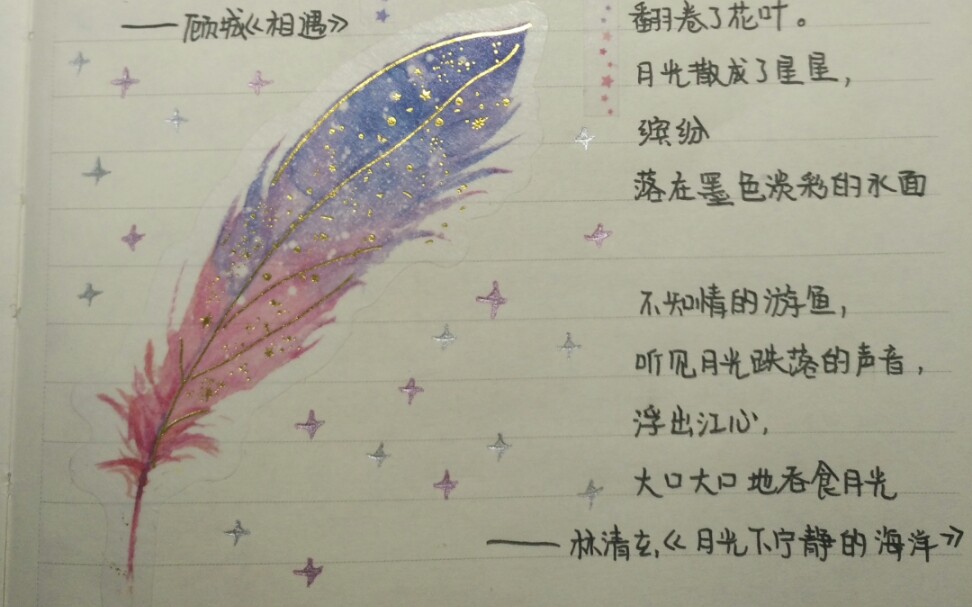 ——倾城《相遇》
翻卷了花叶。
月光散成了星星，
缤纷
落在墨色淡彩的水面
不知情的游鱼，
听见月光跌落的声音，
浮出江心，
大口大口地吞食月光
——林清玄，《月光下宁静的海洋》